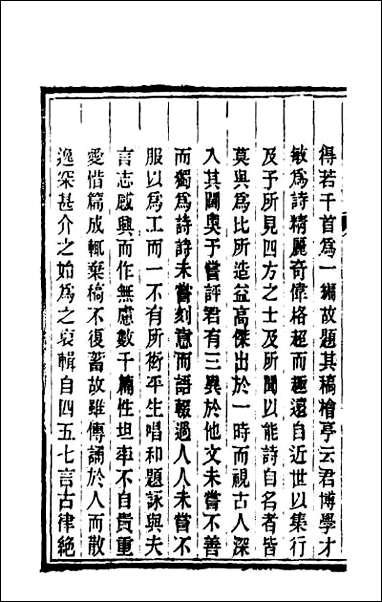 得若干首為一編故題其稿檜亭云君博學才
敏為詩精麗奇偉格超而趣遠自近世以集行
及予所見四方之士及所聞以能詩自名者皆
莫與為比所造益高傑出於一時而視古人深
入其閫奧于嘗評君有三異於他文未嘗不善
而獨為詩詩未嘗刻意而語輒過人人未嘗不
服以為工而一不有所衒平生唱和題詠與夫
言志感興而作無慮數千篇性坦率不自貴重
愛惜篇成輒棄稿不復蓄故雖傳誦於人而散
逸深甚介之始為之裒輯自四五七言古律絶